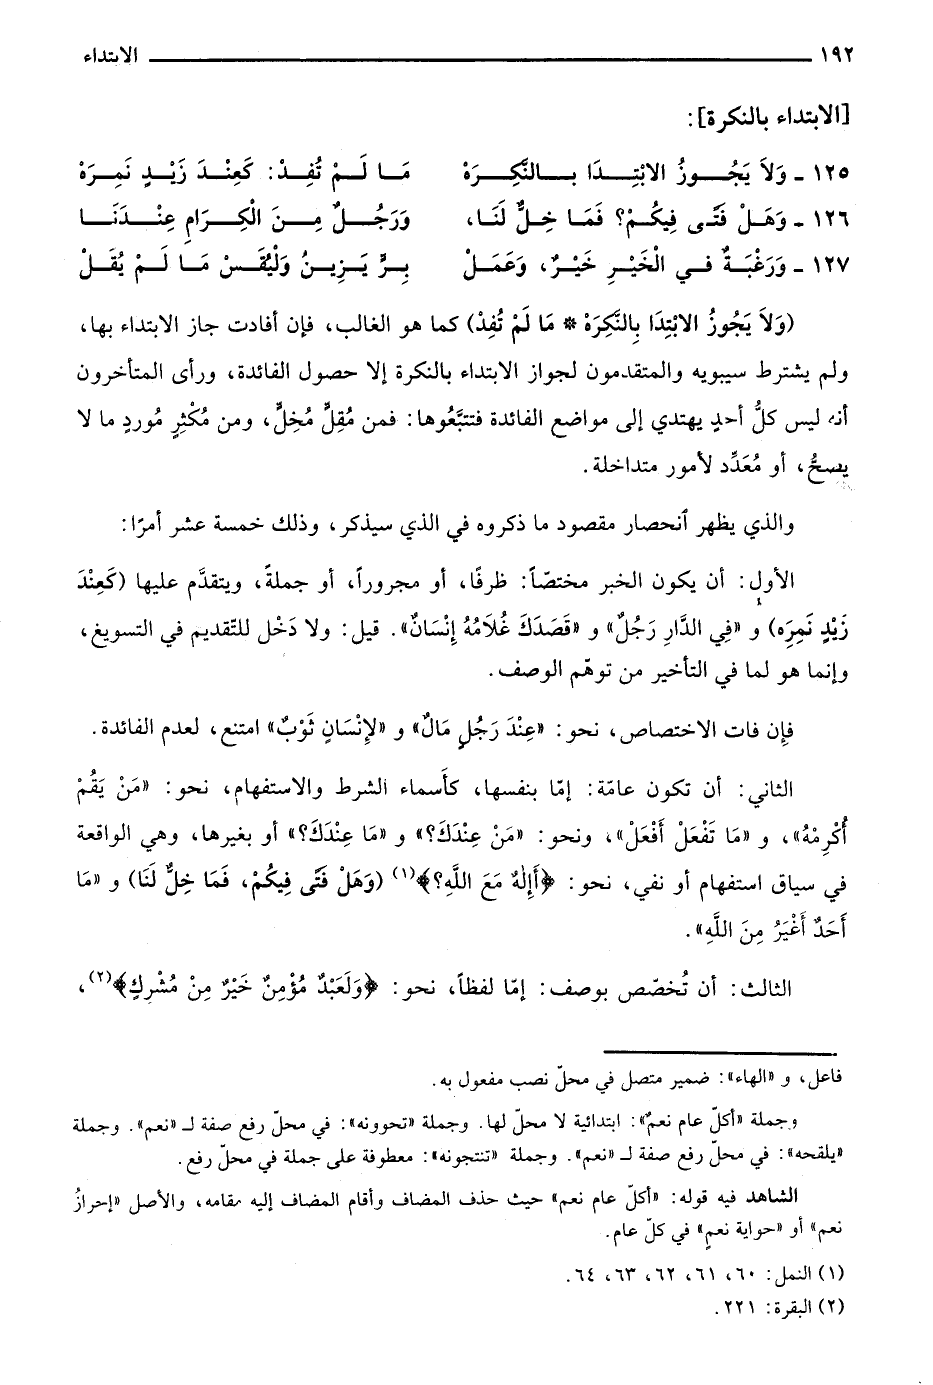 ١٩٢ الابتداء
[الابتداء بالنكرة]:
١٢٥ ـ وَلَا يَجُـــوزُ الابْتِـــدَا بــالنَّكِــرَهْ مَا لَــمْ تُفِـدْ: كَعِنْـدَ زَيْـدٍ نَمِـرَهْ
١٢٦ ـ وَهَـلْ فَتًـى فِيكُـمْ؟ فَمَـا خِلٌّ لَنَا، وَرَجُــلٌ مِــنَ الْكِـرَامِ عِنْـدَنَـا
١٢٧ ـ وَرَغْبَـةٌ فـي الْخَيْـرِ خَيْـرٌ، وَعَمَـلْ بِـرٍّ يَـزِيـنُ وَلْيُقَـسْ مَـا لَـمْ يُقَـلْ
(وَلَا يَجُوزُ الابْتِدَا بِالنَّكِرَهْ * مَا لَمْ تُفِدْ) كما هو الغالب، فإن أفادت جاز الابتداء بها،
ولم يشترط سيبويه والمتقدمون لجواز الابتداء بالنكرة إلا حصول الفائدة، ورأى المتأخرون
أنه ليس كلُّ أحدٍ يهتدي إلى مواضع الفائدة فتتبَّعُوها: فمن مُقِلٍّ مُخِلٍّ، ومن مُكْثِرٍ مُوردٍ ما لا
يصحُّ، أو مُعَدِّد لأمور متداخلة.
والذي يظهر ٱنحصار مقصود ما ذكروه في الذي سيذكر، وذلك خمسة عشر أمرًا:
الأول: أن يكون الخبر مختصّاً: ظرفًا، أو مجروراً، أو جملةً، ويتقدَّم عليها (كَعِنْدَ
زَيْدٍ نَمِرَه) و «فِي الدَّارِ رَجُلٌ» و «قَصَدَكَ غُلَامُهُ إِنْسَانٌ». قيل: ولا دَخْل للتّقديم في التسويغ،
وإنما هو لما في التأخير من توهّم الوصف.
فإن فات الاختصاص، نحو: «عِنْدَ رَجُلٍ مَالٌ» و «لِإنْسَانٍ ثَوْبٌ» امتنع، لعدم الفائدة.
الثاني: أن تكون عامّة: إمّا بنفسها، كأَسماء الشرط والاستفهام، نحو: «مَنْ يَقُمْ
أُكْرِمْهُ»، و «مَا تَفْعَلْ أَفْعَلْ»، ونحو: «مَنْ عِنْدَكَ؟» و «مَا عِنْدَكَ؟» أو بغيرها، وهي الواقعة
في سياق استفهام أو نفي، نحو: ﴿أَإِلٰهٌ مَعَ اللَّهِ؟﴾(١) (وَهَلْ فَتًى فِيكُمْ، فَمَا خِلٌّ لَنَا) و «مَا
أَحَدٌ أَغْيَرُ مِنَ اللَّهِ».
الثالث: أن تُخصّص بوصف: إمّا لفظاً، نحو: ﴿وَلَعَبْدٌ مُؤْمِنٌ خَيْرٌ مِنْ مُشْرِكٍ﴾(٢)،
فاعل، و «الهاء»: ضمير متصل في محلّ نصب مفعول به.
وجملة «أكلّ عام نعمٌ»: ابتدائية لا محلّ لها. وجملة «تحوونه»: في محلّ رفع صفة لـ «نعم». وجملة
«يلقحه»: في محلّ رفع صفة لـ «نعم». وجملة «تنتجونه»: معطوفة على جملة في محلّ رفع.
الشاهد فيه قوله: «أكلّ عام نعم» حيث حذف المضاف وأقام المضاف إليه مقامه، والأصل «إحرازُ
نعم» أو «حواية نعمٍ» في كلّ عام.
(١) النمل: ٦٠، ٦١، ٦٢، ٦٣، ٦٤.
(٢) البقرة: ٢٢١.